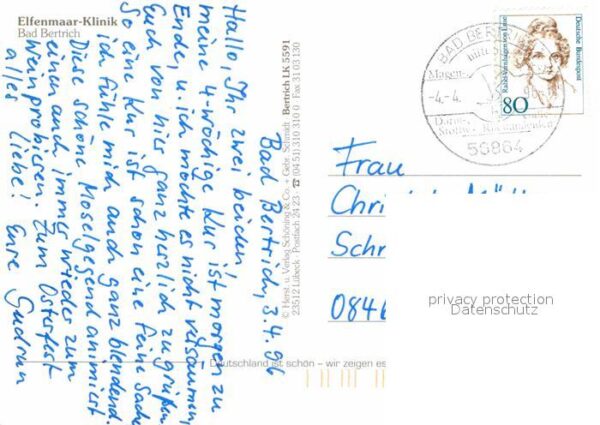 Elfenmaar-Klinik
Bad Bertrich
Bad Bertrich, 3.4.96
Hallo Ihr zwei beiden,
meine 4-wöchige Kur ist morgen zu
Ende, u. ich möchte es nicht versäumen,
Euch von hier ganz herzlich zu grüßen.
So eine Kur ist schon eine feine Sache
ich fühle mich auch ganz blendend.
Diese schöne Moselgegend animiert
einen auch immer wieder zum
Weinprobieren. Zum Osterfest
alles liebe! Eure Gudrun
© Herst. u. Verlag Schöning & Co. + Gebr. Schmidt Bertrich LK 5591
23512 Lübeck · Postfach 24 23 · ☎ (04 51) 310 310 0 · Fax 31 03 130
Deutschland ist schön – wir zeigen es
BAD BER
Magen-
-4.-4.
Darm-
56864
Deutsche Bundespost
80
Frau
Chri
Schr
0846
privacy protection
Datenschutz